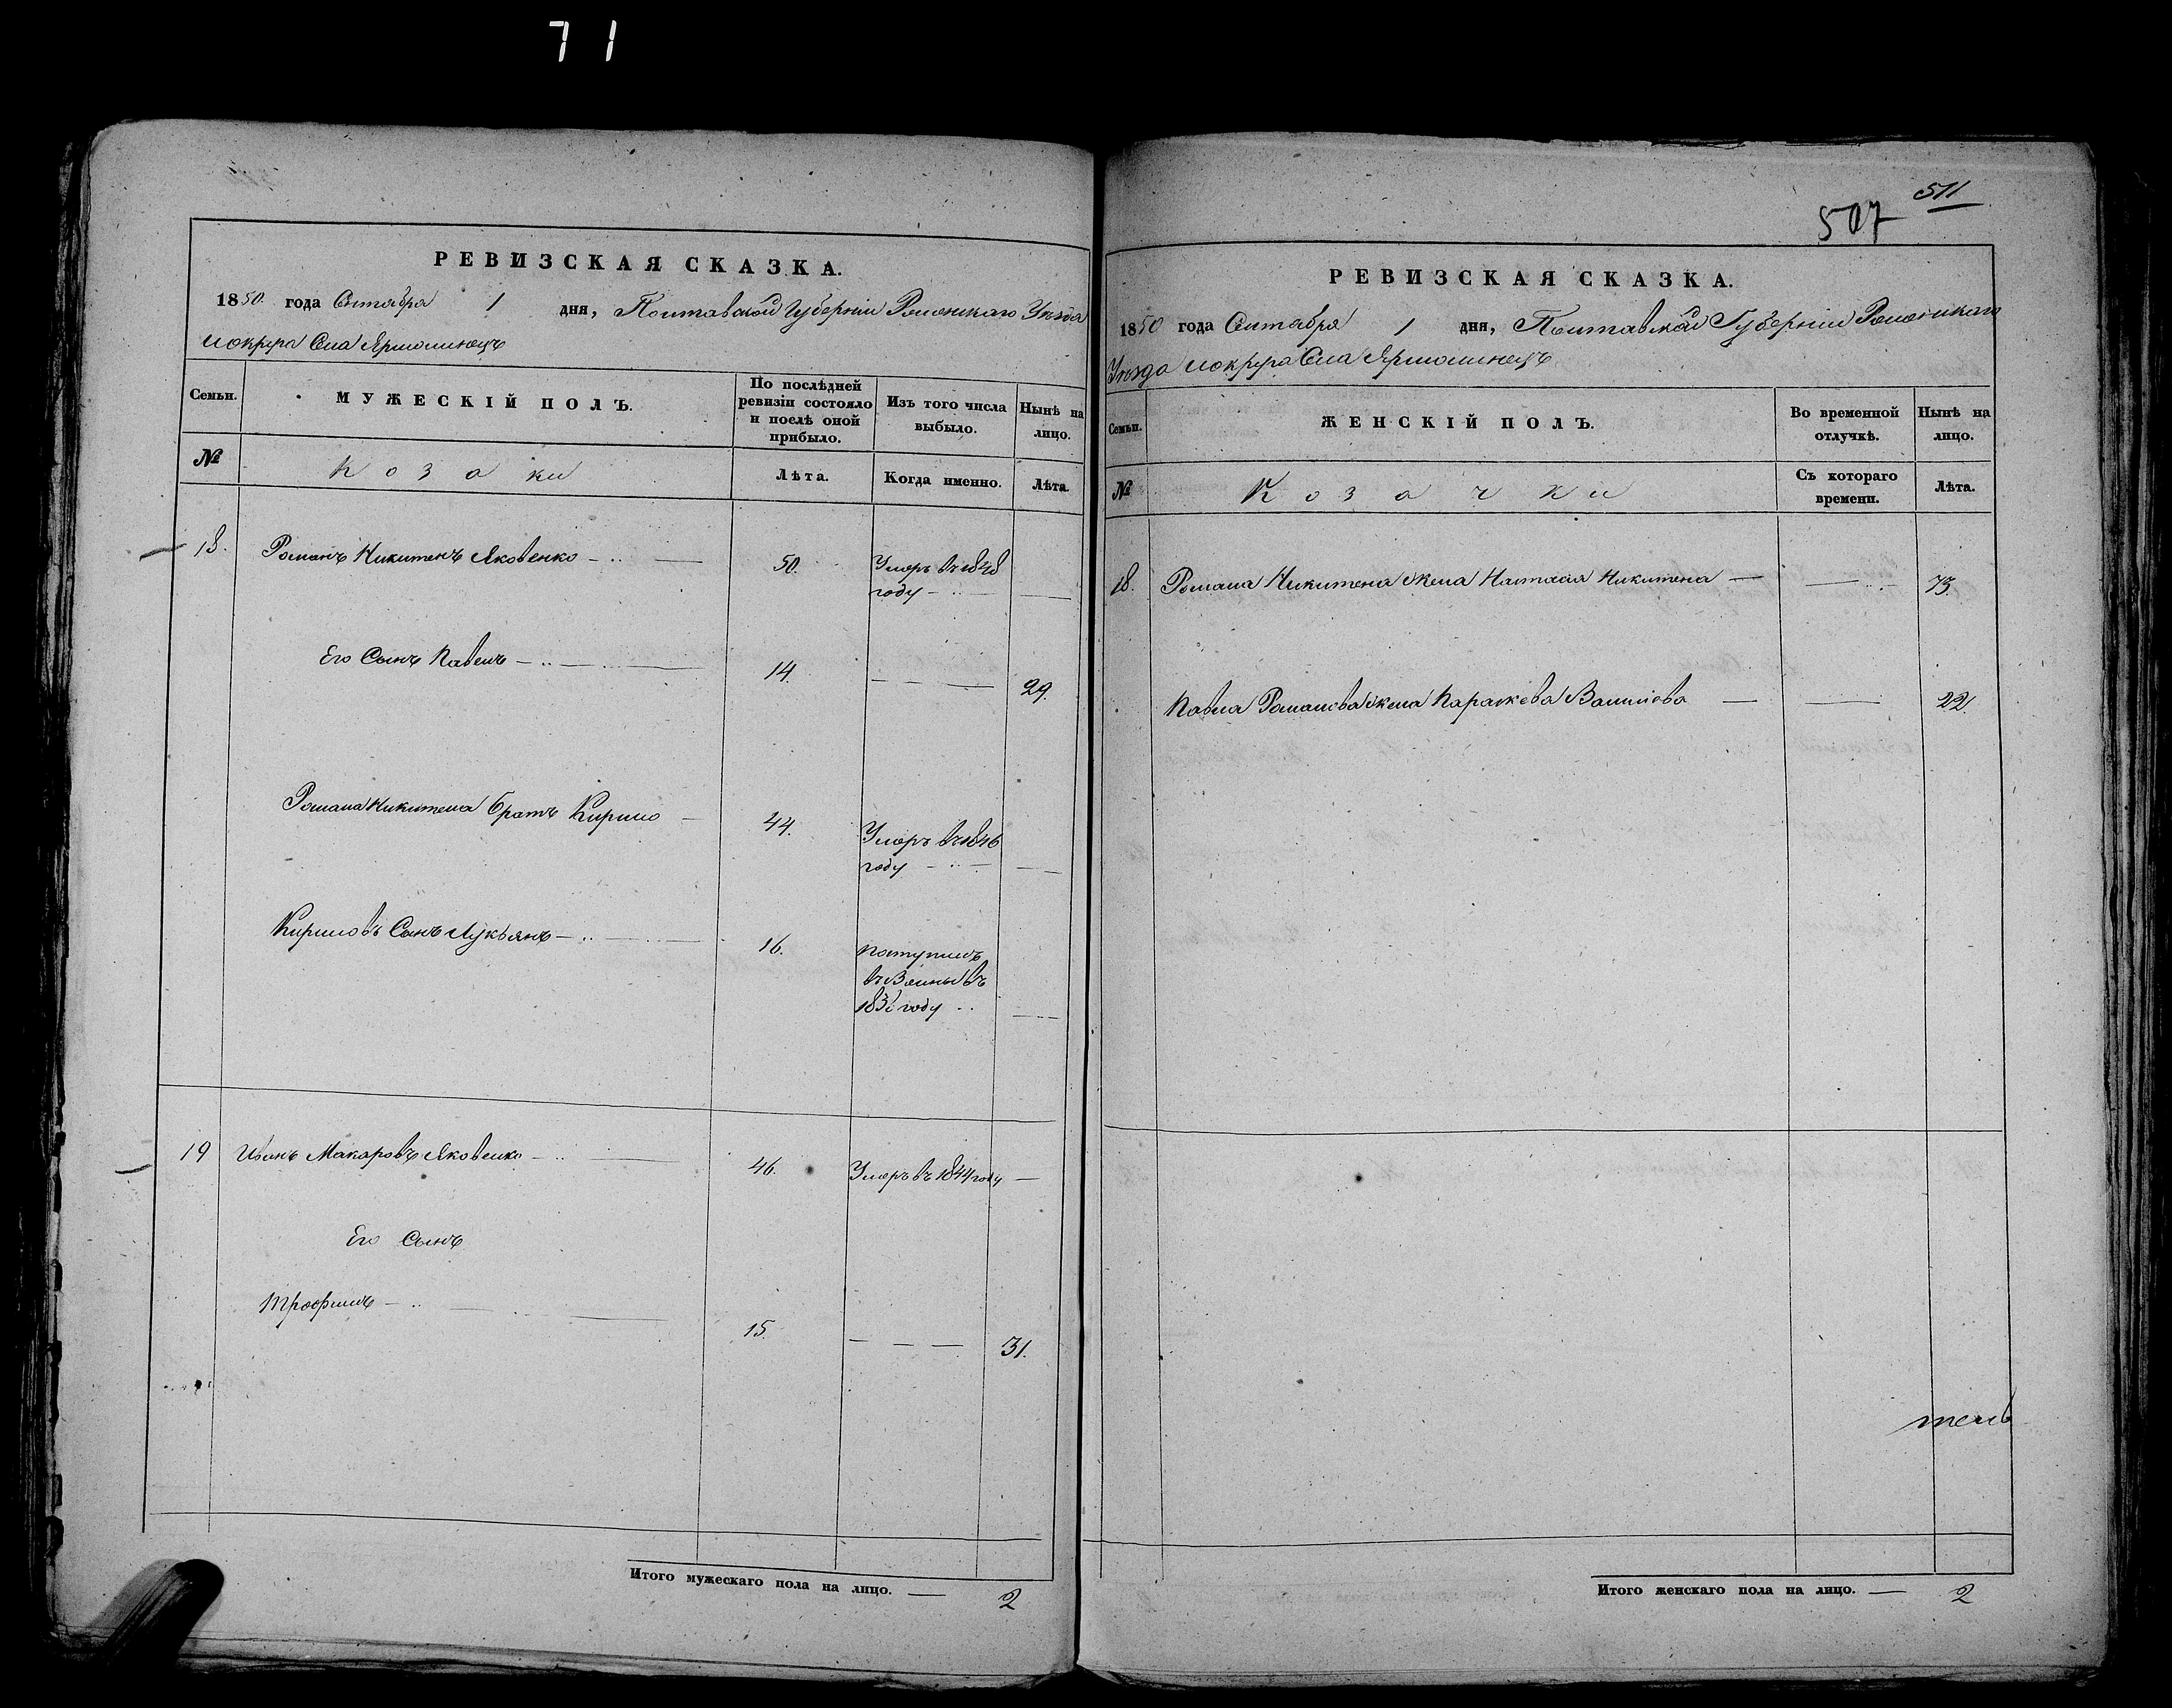 71
РЕВИЗСКАЯ СКАЗКА.
1850. года Сентября 1 дня, Полтавской Губерніи Роменскаго Уѣзда
Села Ярмолинецъ
Семьи.
МУЖЕСКІЙ ПОЛЪ.
По послѣдней ревизіи состояло и послѣ оной прибыло.
Изъ того числа выбыло.
Нынѣ на лицо.
№
Козаки
Лѣта.
Когда именно.
Лѣта.
18. Романъ Никитенъ Яковенко 50. Умеръ въ 1848
году
Его Сынъ Павелъ 14. 29.
Романа Никитена братъ Кирило 44. Умеръ въ 1846
году
Кириловъ Сынъ Лукьянъ 16. поступилъ
въ
году
19 Иванъ Макаровъ Яковенко 46. Умеръ въ 1844 году
Его Сынъ
Трофимъ 15. 31.
Итого мужескаго пола на лицо. 2
511
507
РЕВИЗСКАЯ СКАЗКА.
1850 года Сентября 1 дня, Полтавской Губерніи Роменскаго
Уѣзда Села Ярмолинецъ
Семьи.
ЖЕНСКІЙ ПОЛЪ.
Во временной отлучкѣ.
Нынѣ на лицо.
№
Козачки
Съ котораго времени.
Лѣта.
18. Романа Никитена жена Настасія Никитена 73.
Павла Романова жена Параскева Васильева 22.
Итого женскаго пола на лицо. 2